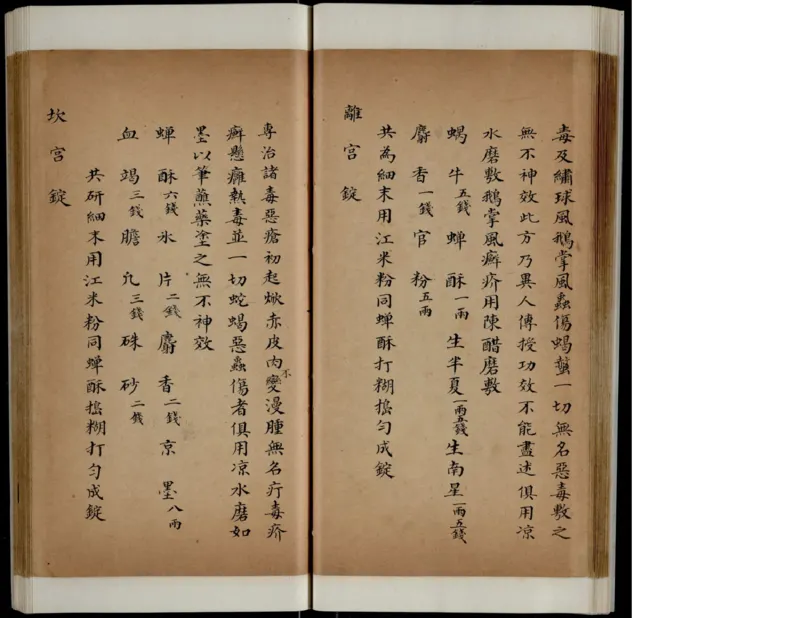 毒及繡球風鵝掌風蟲傷蝎螫一切無名惡毒敷之
無不神效此方乃異人傳授功效不能盡述俱用凉
水磨敷鵝掌風癬疥用陳醋磨敷
蝸牛五錢蟬酥一兩生半夏一兩五錢生南星一兩五錢
麝香一錢官粉五兩
共為細末用江米粉同蟬酥打糊搗勻成錠
離宮錠
專治諸毒惡瘡初起焮赤皮肉不變漫腫無名疔毒疥
癬懸癰熱毒並一切蛇蝎惡蟲傷者俱用凉水磨如
墨以筆蘸藥塗之無不神效
蟬酥六錢氷片二錢麝香二錢京墨八兩
血竭三錢膽凢三錢硃砂二錢
共研細末用江米粉同蟬酥搗糊打勻成錠
坎宮錠